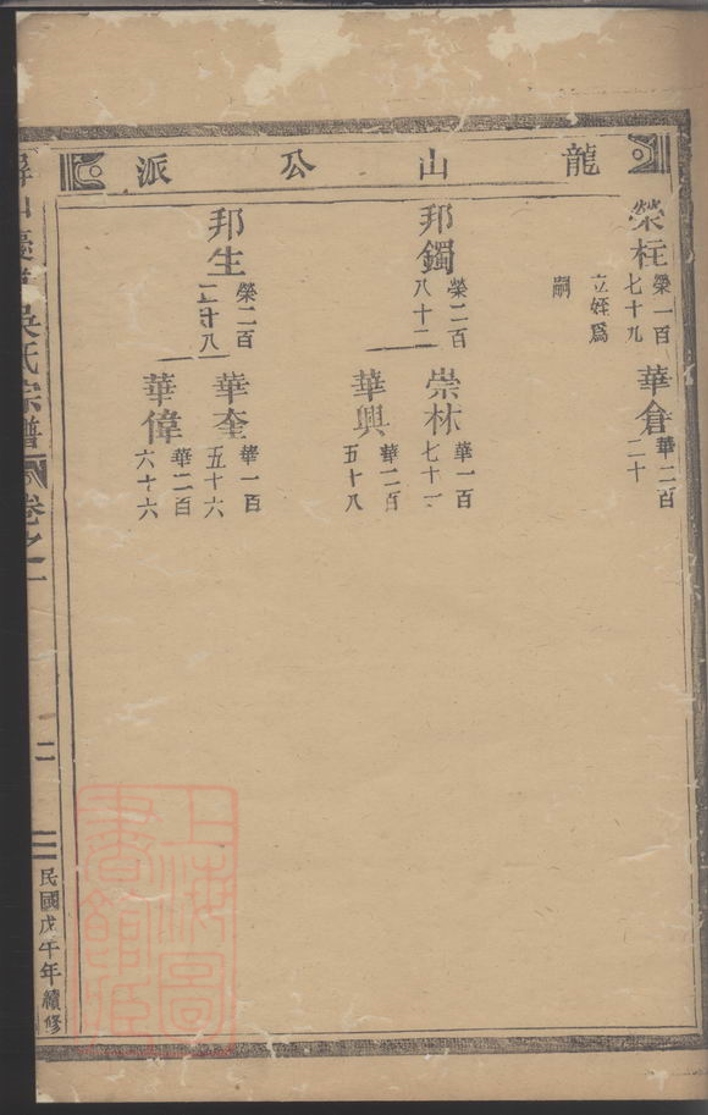 龍山公派
榮枉
榮一百
七十九
立姪爲
嗣
華倉
華二百
二十
邦鐲
榮二百
八十二
崇林
華一百
七十一
華興
華二百
五十八
邦生
榮二百
二十八
華奎
華一百
五十六
華偉
華二百
六十六
吳氏宗譜
卷之二
二
民國戊午年續修
上海圖
書館藏